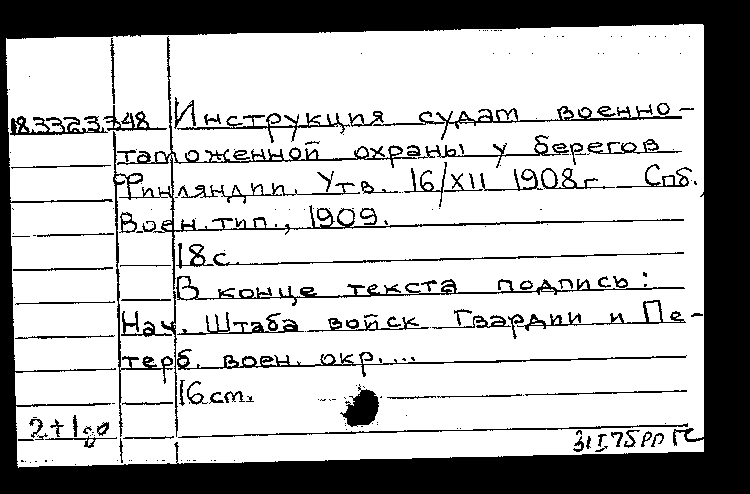 18.332.3.348 Инструкция судам военно-
таможенной охраны у берегов
Финляндии. Утв. 16/XII 1908г. Спб.,
Воен. тип., 1909.
18с.
В конце текста подпись:
Нач. Штаба войск Гвардии и Пе-
терб. воен. окр. ...
16 ст.
2+1
31I75